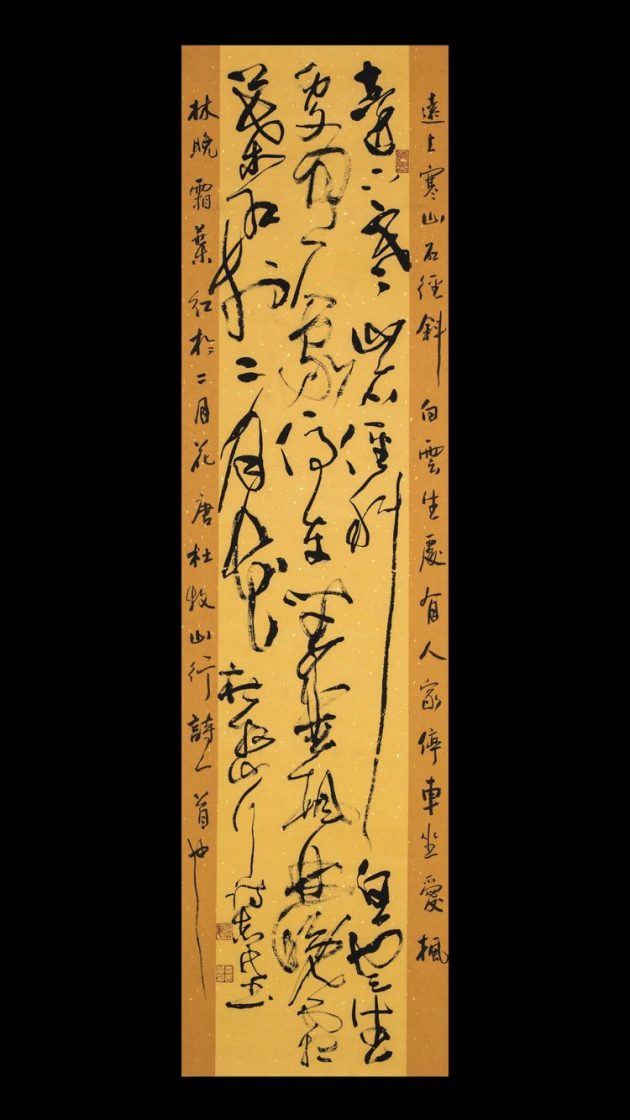 遠上寒山石徑斜 白雲生處有人家停車坐愛楓
遠上寒山石徑斜 白雲生
處有人家停車坐愛楓林晚霜
葉紅於二月花 杜牧山行詩
林晚霜葉紅於二月花唐杜牧山行詩一首也